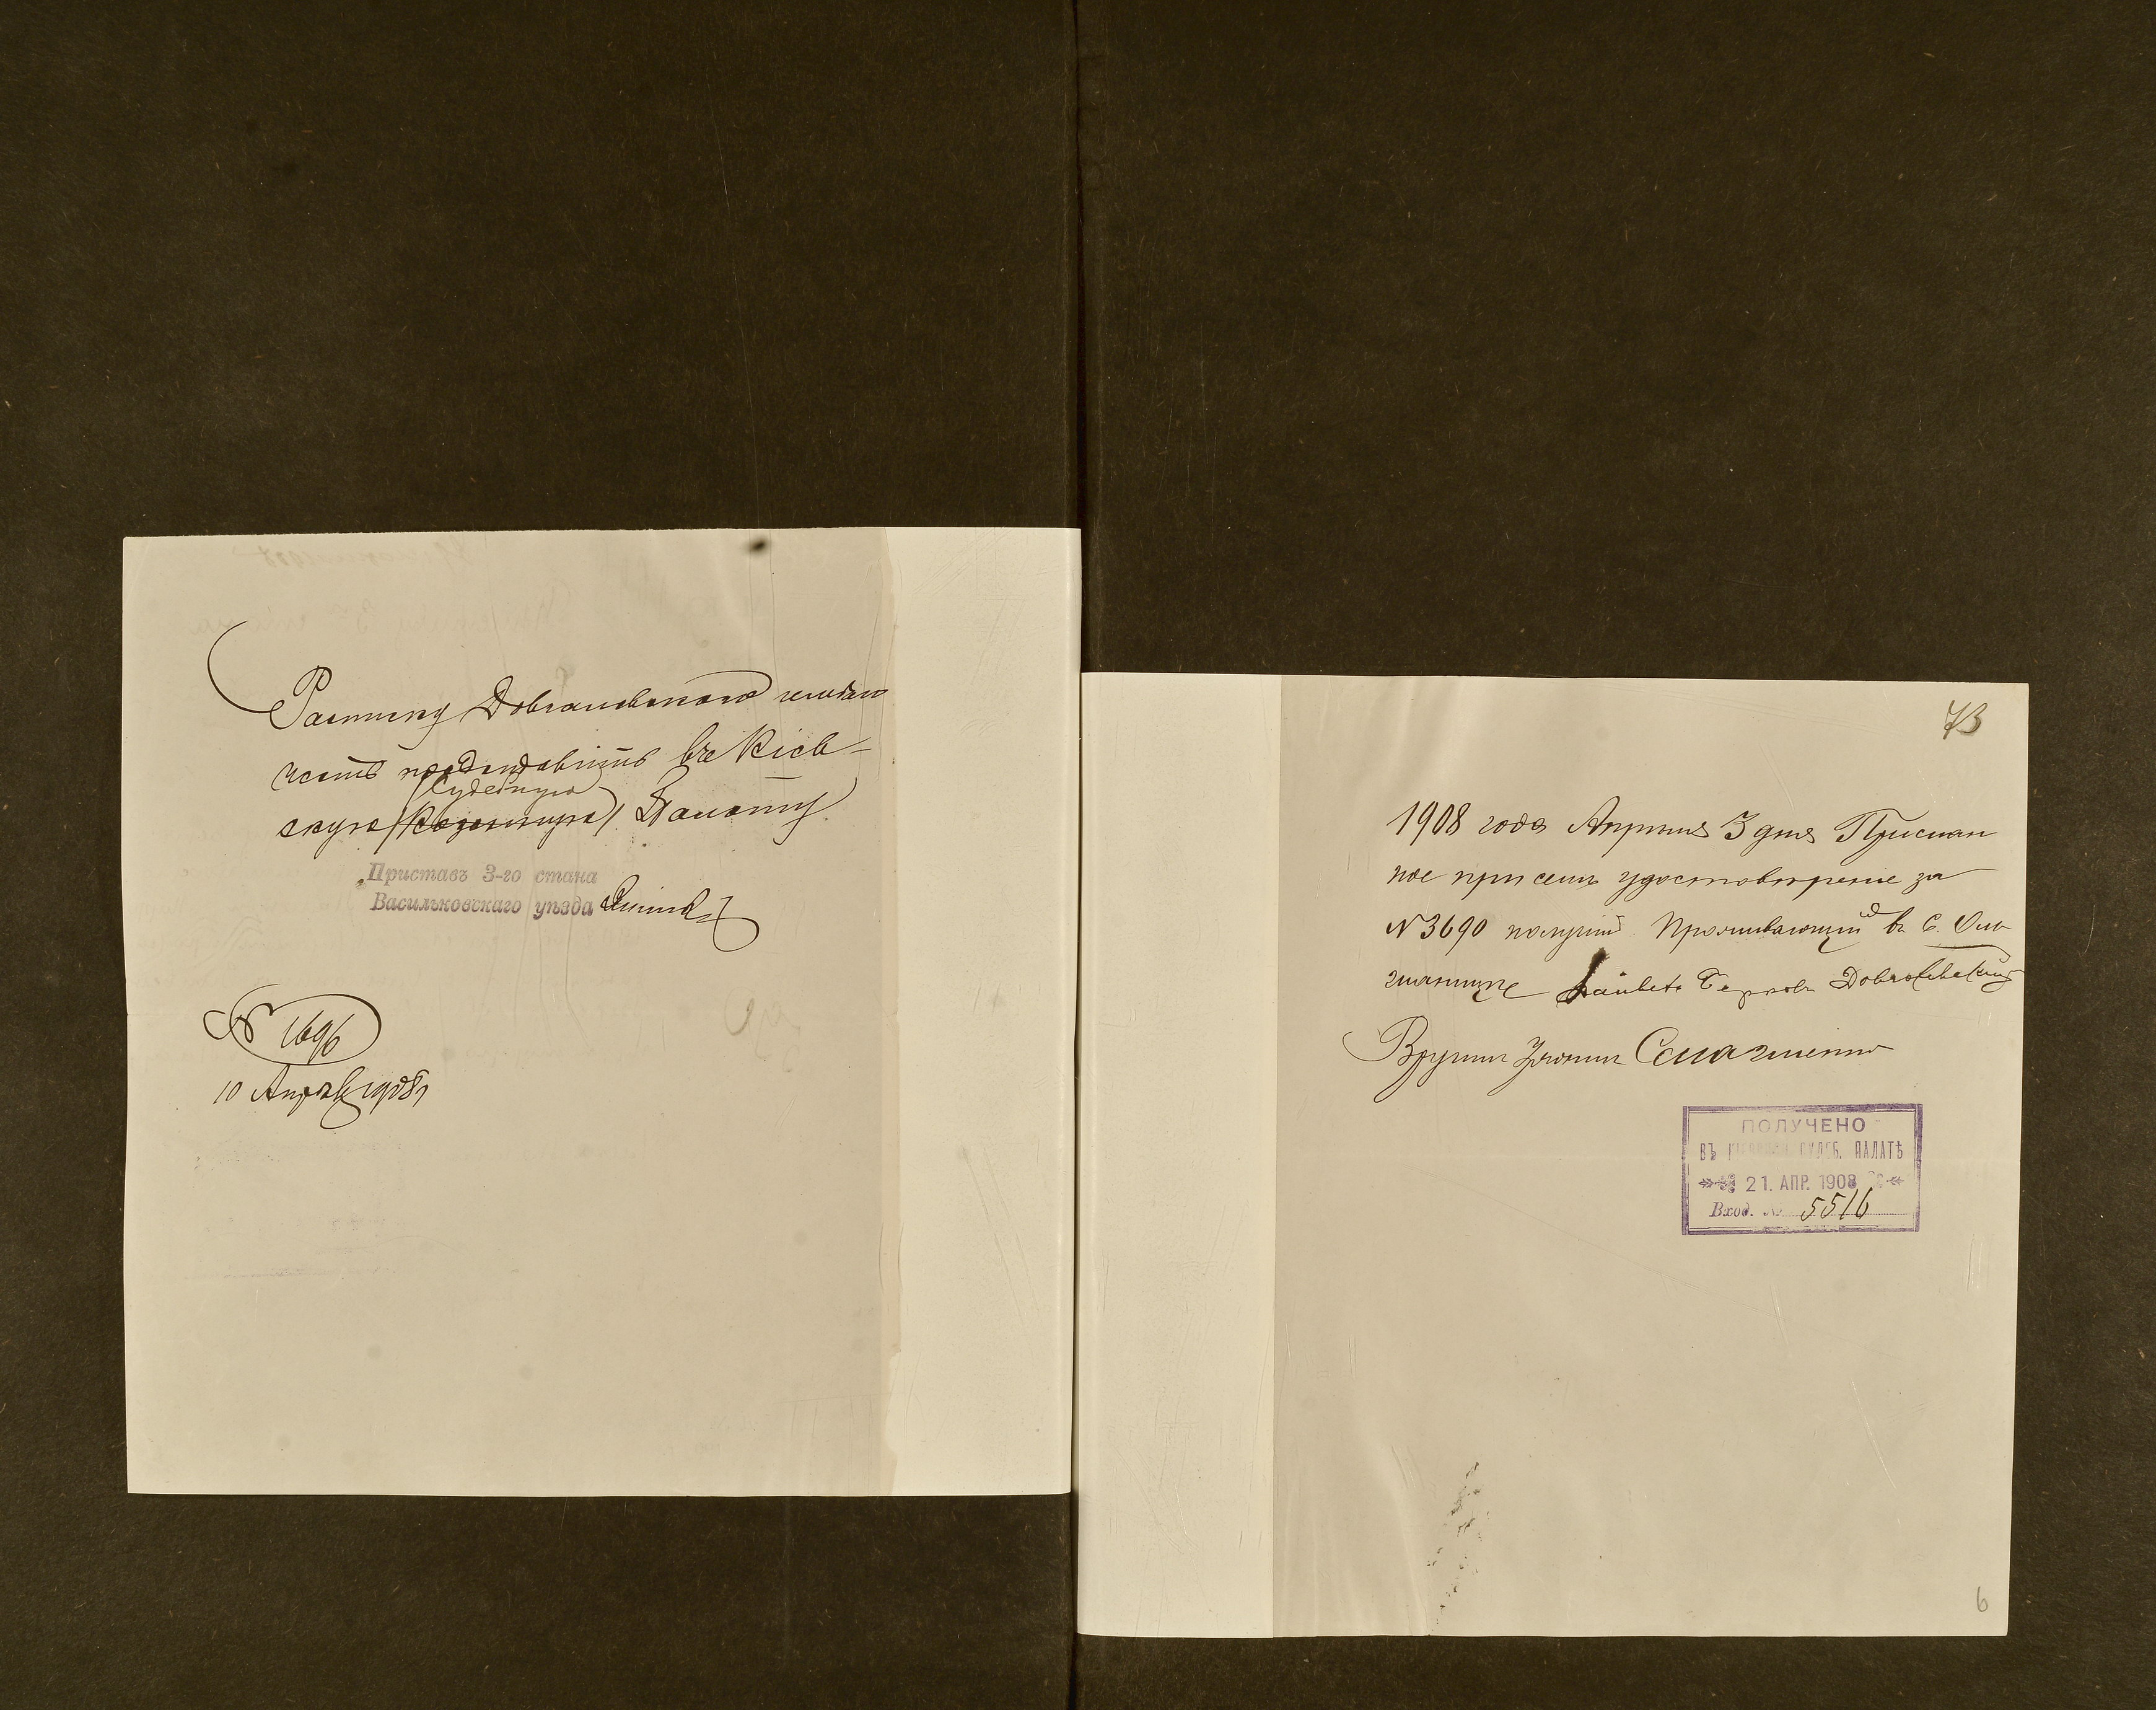 Расписку Довгалевскаго имѣю
честь представить въ Кіев-
Судебную
скую (Казенную) Палату
Приставъ 3-го стана
Васильковскаго уѣзда
№ 1696
10 Апрѣля 1908 г
73
1908 года Апрѣля 3 дня Прислан
ное при семъ удостовѣреніе за
№ 3690 получилъ Проживающій въ с. Оль
шаницѣ Берковъ Довгалевскій
Вручилъ Урядникъ
ПОЛУЧЕНО
ВЪ КІЕВСКОЙ СУДЕБ. ПАЛАТѢ
21. АПР. 1908
Вход. № 5516
6